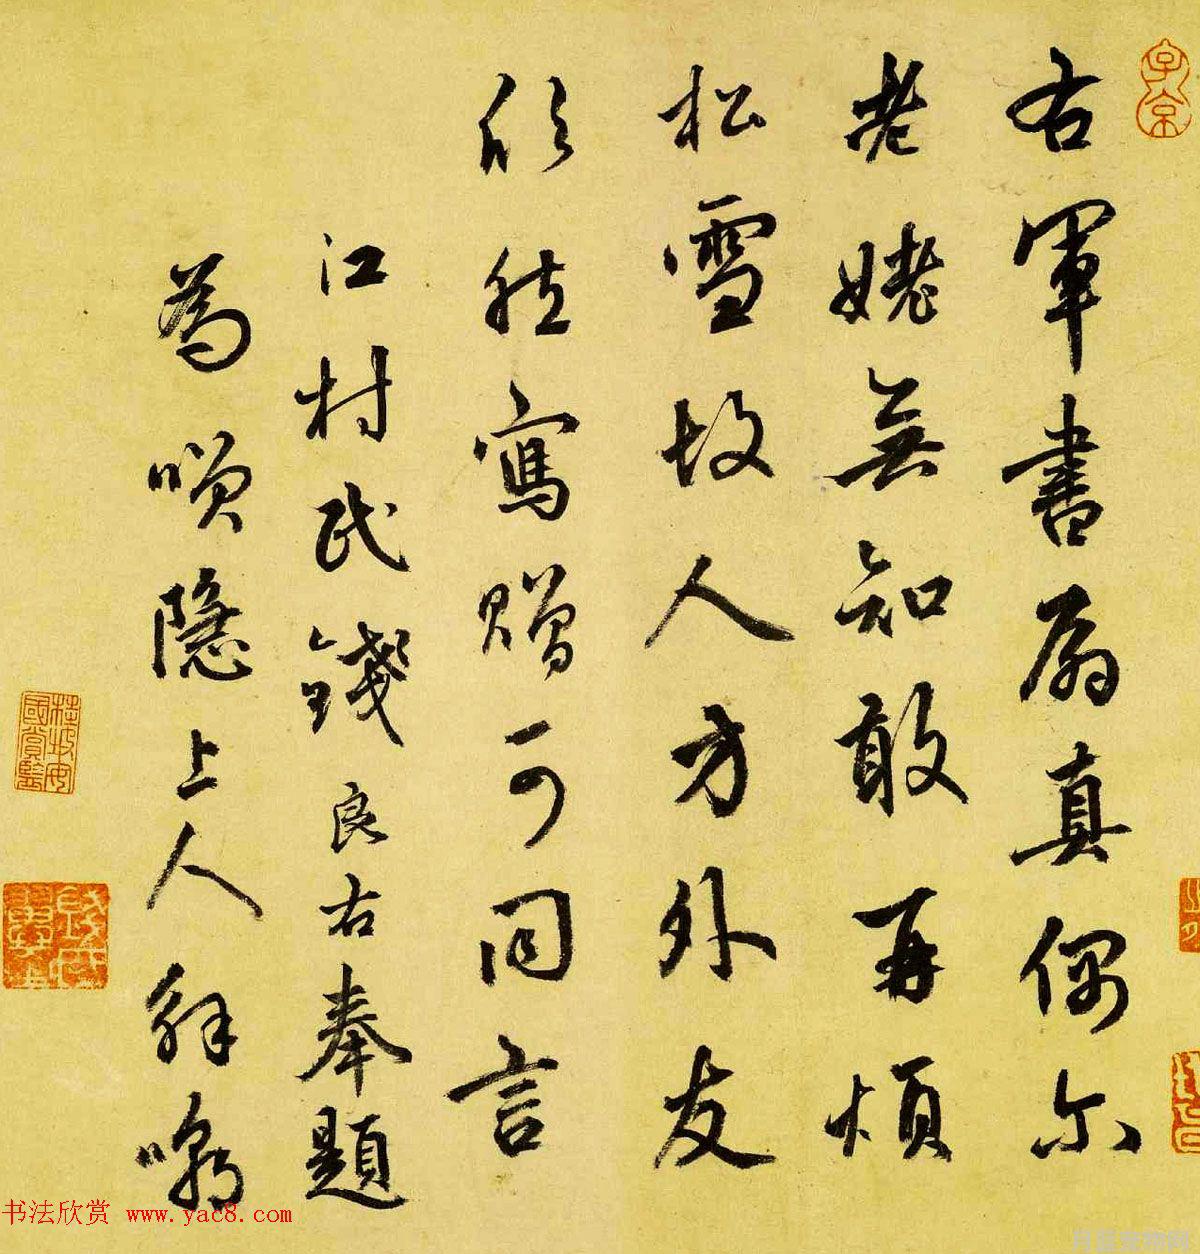 右軍書扇真偶尔
老姥無知敢再煩
松雪故人方外友
欣然寫贈可同言
江村民錢良右奉題
為嘆隱上人解嘲
子京
書法欣赏 www.yac8.com